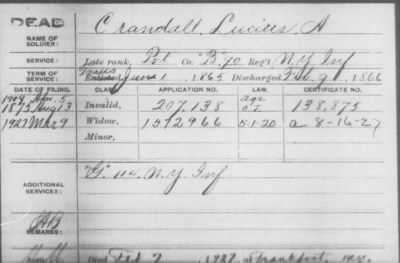 DEAD
NAME OF SOLDIER: Crandall, Lucius, A
SERVICE: Late rank, Pvt Co. "B", 70 Reg't N.Y. Inf
TERM OF SERVICE: Trans June 1, 1865 Discharged 1866
DATE OF FILING. CLASS. APPLICATION NO. LAW. CERTIFICATE NO.
1904 Apr. 5 Age
1875 Aug 13 Invalid, 207,138 138,875
1927 Mar 9 Widow, 1572966 5-1-20 a 8-16-27
Minor,
ADDITIONAL SERVICES: "G" 114, N.Y. Inf
REMARKS:
Died Feb 7, 1927, at Frankfort, N.Y.